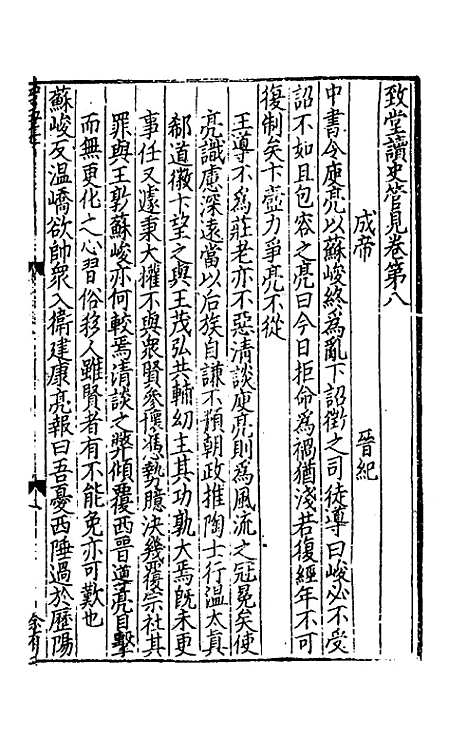 致堂讀史管見卷第八
成帝　晉紀
中書令庾亮以蘇峻終爲亂下詔徵之司徒導曰峻必不受
詔不如且包容之亮曰今日拒命爲禍猶淺若復經年不可
復制矣卞壼力爭亮不從
王導不爲莊老亦不惡清談庾亮則爲風流之冠冕矣使
亮識慮深遠當以后族自謙不預朝政推陶士行溫太真
郗道徽卞望之與王茂弘共輔幼主其功孰大焉旣未更
事任又遽秉大權不與衆賢參懷憑勢臆決幾覆宗社其
罪與王敦蘇峻亦何較焉清談之弊傾覆西晉導亮目擊
而無更化之心習俗移人雖賢者有不能免亦可歎也
蘇峻反溫嶠欲帥衆入衞建康亮報曰吾憂西陲過於歷陽